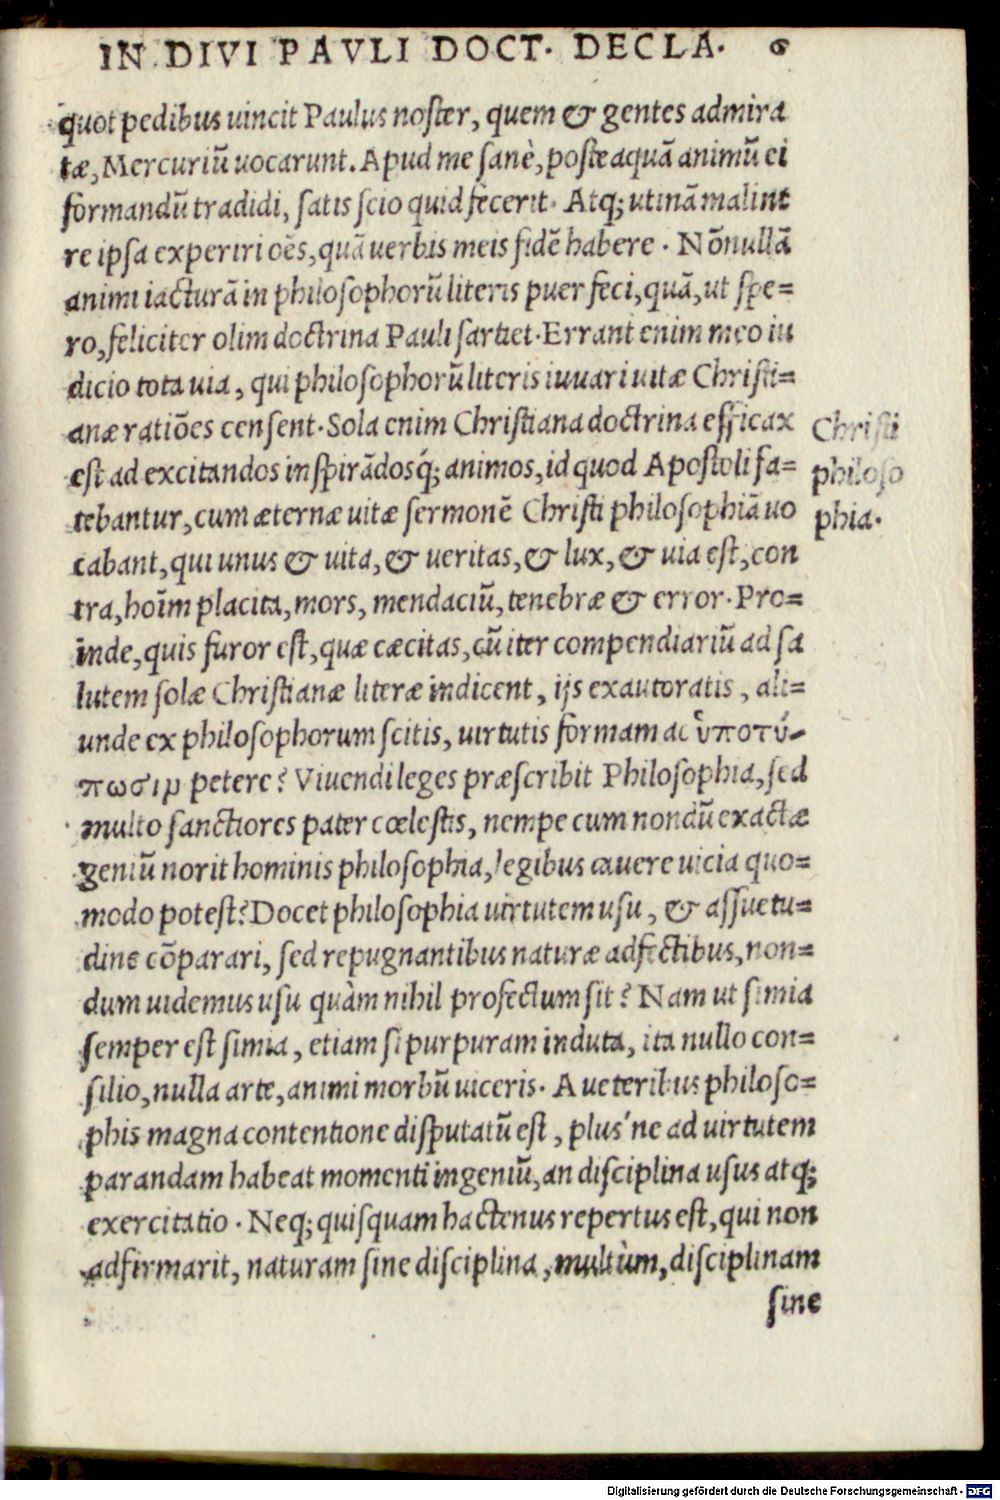 IN DIVI PAVLI DOCT. DECLA.
quot pedibus uincit Paulus noster, quem & gentes admira
tæ, Mercuriũ uocarunt. Apud me sanè, posteaquã animũ ei
formandũ tradidi, satis scio quid fecerit. Atq; utinã malint
re ipsa experiri oẽs, quã uerbis meis fidẽ habere. Nõnullã
animi iacturã in philosophorũ literis puer feci, quã, ut spe=
ro, feliciter olim doctrina Pauli sartiet. Errant enim meo iu
dicio tota uia, qui philosophorũ literis iuuari uitæ Christi=
anæ ratiões censent. Sola enim Christiana doctrina efficax
est ad excitandos inspirãdosq́; animos, id quod Apostoli fa=
tebantur, cum æternæ uitæ sermonẽ Christi philosophiã uo
cabant, qui unus & uita, & ueritas, & lux, & uia est, con
tra, hoĩm placita, mors, mendaciũ, tenebræ & error. Pro=
inde, quis furor est, quæ cæcitas, cũ iter compendiariũ ad sa
lutem solæ Christianæ literæ indicent, ijs exautoratis, ali=
unde ex philosophorum scitis, uirtutis formam ac ὑποτύ-
πωσιμ petere? Viuendi leges præscribit Philosophia, sed
multo sanctiores pater cœlestis, nempe cum nondũ exactæ
geniũ norit hominis philosophia, legibus cauere uicia quo=
modo potest? Docet philosophia uirtutem usu, & assuetu=
dine cõparari, sed repugnantibus naturæ adfectibus, non=
dum uidemus usu quàm nihil profectum sit? Nam ut simia
semper est simia, etiam si purpuram induta, ita nullo con=
silio, nulla arte, animi morbũ uiceris. A ueteribus philoso=
phis magna contentione disputatũ est, plus'ne ad uirtutem
parandam habeat momenti ingeniũ, an disciplina usus atq;
exercitatio. Neq; quisquam hactenus repertus est, qui non
adfirmarit, naturam sine disciplina, multùm, disciplinam
sine
Christi
philoso
phia.
Digitalisierung gefördert durch die Deutsche Forschungsgemeinschaft - DFG